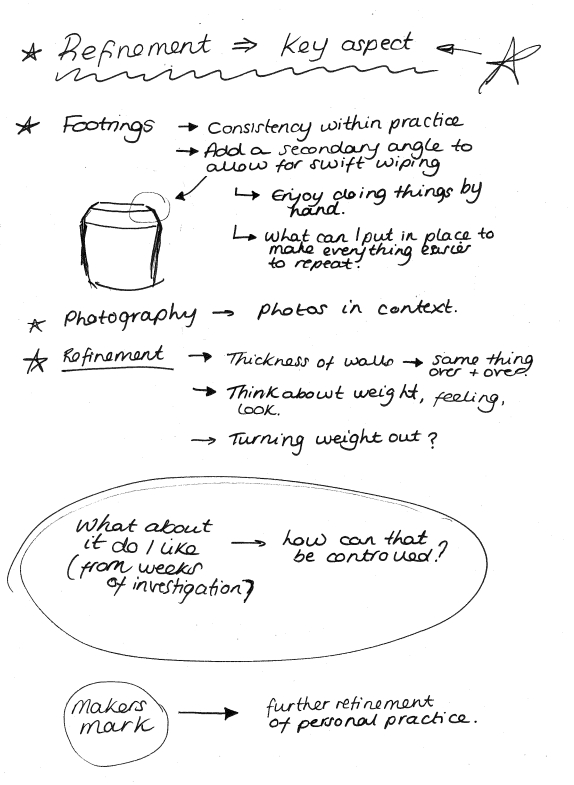 Refinement ⇒ Key aspect ←
Footrings → Consistency within practice
→ Add a secondary angle to
allow for swift wiping
↳ Enjoy doing things by
hand.
↳ What can I put in place to
make everything easier
to repeat?
Photography → Photos in context.
Refinement → Thickness of walls → same thing
over + over.
→ Think about weight, feeling,
look.
→ Turning weight out?
What about
it do I like → how can that
be controlled?
(from weeks
of investigation?)
Makers
mark → further refinement
of personal practice.